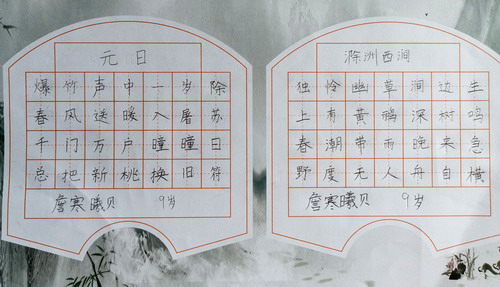 元日
爆竹声中一岁除
春风送暖入屠苏
千门万户曈曈日
总把新桃换旧符
詹寒曦贝 9岁
滁洲西涧
独怜幽草涧边生
上有黄鹂深树鸣
春潮带雨晚来急
野度无人舟自横
詹寒曦贝 9岁